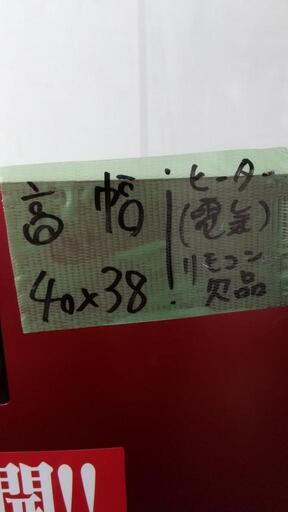 高 幅
40×38
ヒーター
(電気)
リモコン
欠品
開!!